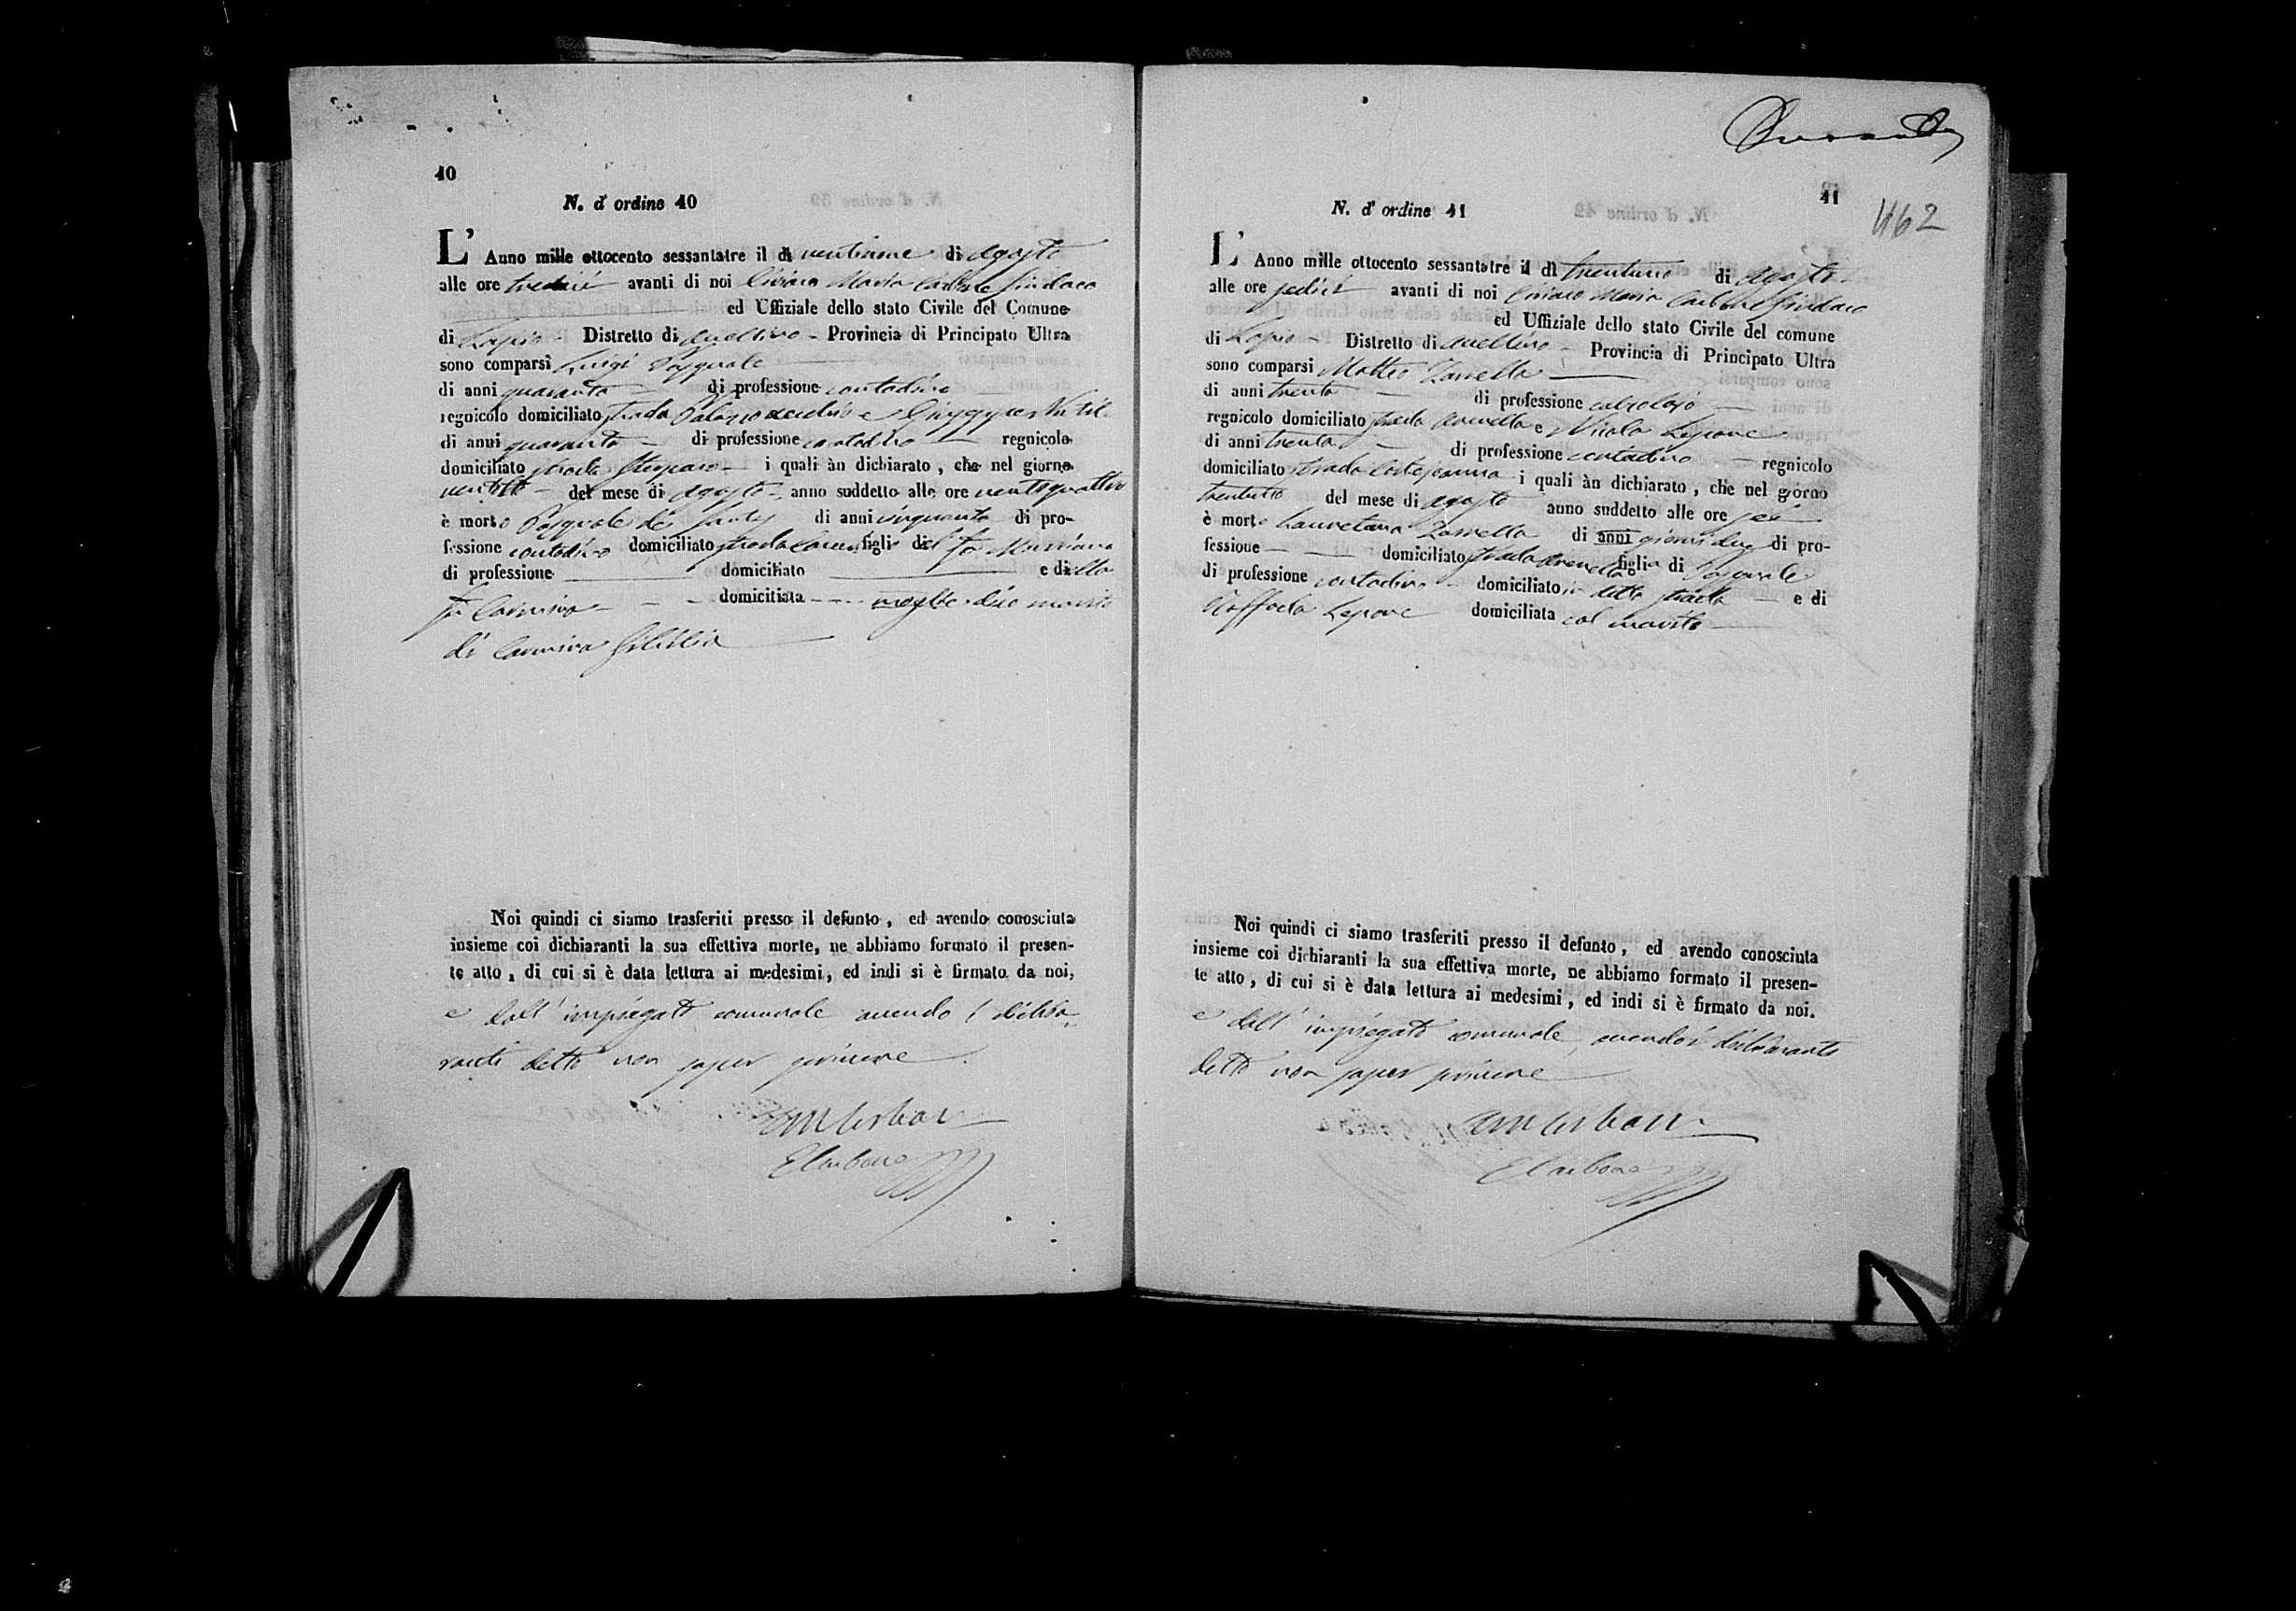 40
N. d' ordine 40
L' Anno mille ottocento sessantatre il dì ventinove di Agosto
alle ore tredici avanti di noi Ciriaco Maria Carbone Sindaco
ed Uffiziale dello stato Civile del Comune
di Lapio Distretto di Avellino Provincia di Principato Ultra
sono comparsi Luigi Pasquale
di anni quaranta di professione contadino
regnicolo domiciliato strada Palazzo e Giuseppe
di anni quaranta di professione contadino regnicolo
domiciliato strada i quali àn dichiarato, che nel giorno
ventotto del mese di Agosto anno suddetto alle ore ventiquattro
è morto Pasquale de Santis di anni cinquanta di pro-
fessione contadino domiciliato strada figlio del fu
di professione domiciliato e di
fu Carmina domicitiata moglie dico marito
di Carmina
Noi quindi ci siamo trasferiti presso il defunto, ed avendo conosciuta
insieme coi dichiaranti la sua effettiva morte, ne abbiamo formato il presen-
te atto, di cui si è data lettura ai medesimi, ed indi si è firmato da noi,
e dall' impiegato comunale avendo i dichia-
ranti detto non saper scrivere
CM Carbone
E Carbone
41
462
N. d' ordine 41
L' Anno mille ottocento sessantatre il dì trentuno di Agosto
alle ore sedici avanti di noi Ciriaco Maria Carbone Sindaco
ed Uffiziale dello stato Civile del comune
di Lapio Distretto di Avellino Provincia di Principato Ultra
sono comparsi Matteo Zarrella
di anni trenta di professione calzolajo
regnicolo domiciliato strada e Nicola Lepore
di anni trenta di professione contadino regnicolo
domiciliato strada i quali àn dichiarato, che nel giorno
trentuno del mese di Agosto anno suddetto alle ore sei
è morta Lauretana Zarrella di anni giorni due di pro-
fessione domiciliato strada figlia di Pasquale
di professione contadino domiciliato in detta strada e di
Raffaela Lepore domiciliata col marito
Noi quindi ci siamo trasferiti presso il defunto, ed avendo conosciuta
insieme coi dichiaranti la sua effettiva morte, ne abbiamo formato il presen-
te atto, di cui si è data lettura ai medesimi, ed indi si è firmato da noi.
e dall' impiegato comunale, avendo i dichiaranti
detto non saper scrivere
CM Carbone
E Carbone